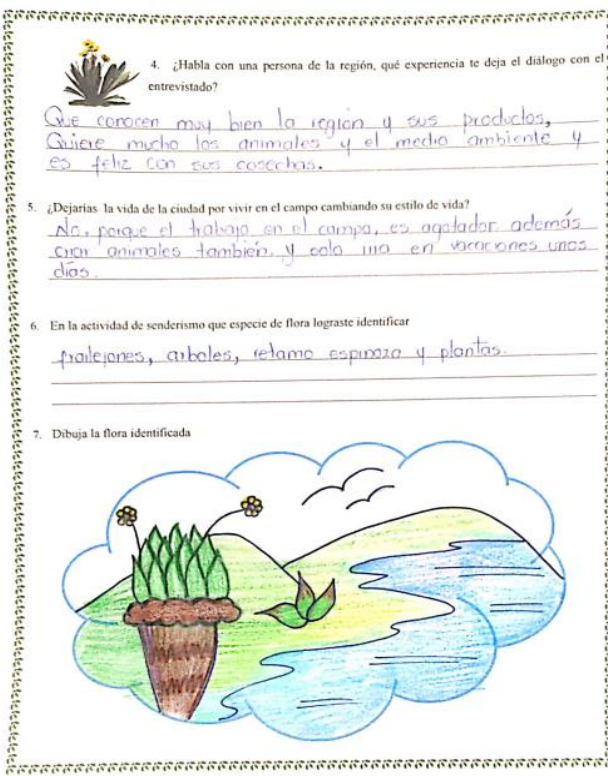 4. ¿Habla con una persona de la región, qué experiencia te deja el diálogo con el
entrevistado?
Que conocen muy bien la región y sus productos,
Quiere mucho los animales y el medio ambiente y
es feliz con sus cosechas.
5. ¿Dejarías la vida de la ciudad por vivir en el campo cambiando su estilo de vida?
No, porque el trabajo en el campo, es agotador además
criar animales también, y solo iria en vacaciones unos
días.
6. En la actividad de senderismo que especie de flora lograste identificar
frailejones, arboles, retamo espinozo y plantas.
7. Dibuja la flora identificada